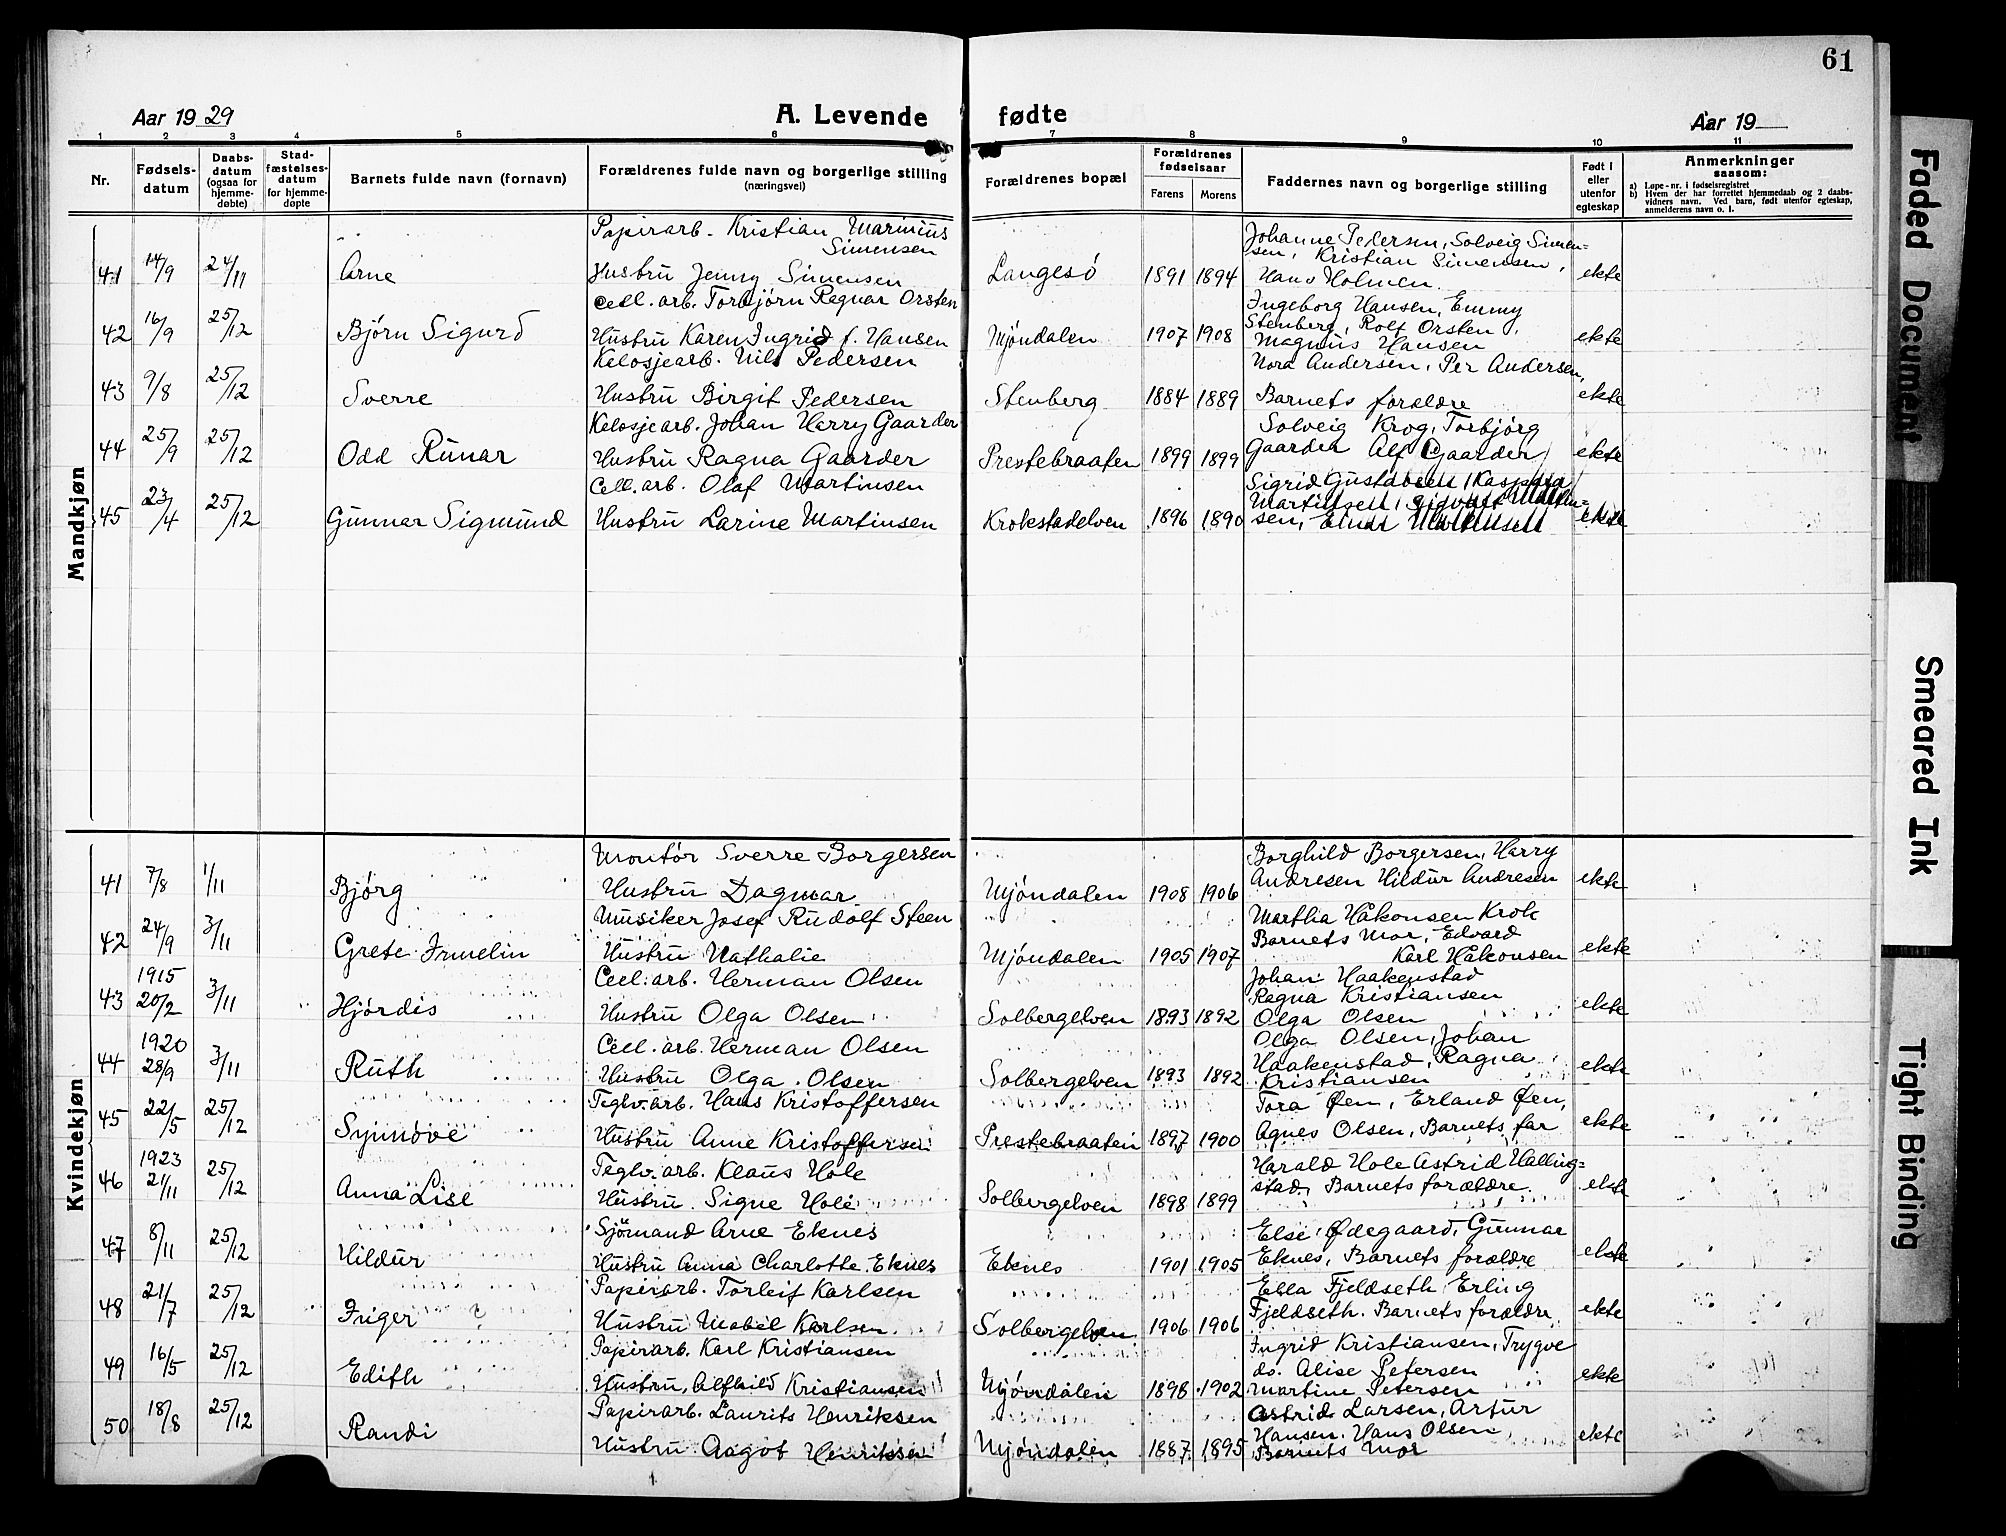 61
Aar 1929 A. Levende fødte Aar 19
1 2 3 4 5 6 7 8 9 10 11
Nr. Fødsels-datum Daabs-datum (ogsaa for hjemme-døbte) Stad-fæstelses-datum for hjemme-døpte Barnets fulde navn (fornavn) Forældrenes fulde navn og borgerlige stilling (næringsvei) Forældrenes bopæl Forældrenes fødselsaar Farens Morens Faddernes navn og borgerlige stilling Født i eller utenfor egteskap Anmerkninger saasom:
a) Løpe-nr. i fødselsregistret
b) Hvem der har forrettet hjemmedaab og 2 daabs-vidners navn. Ved barn, født utenfor egteskap, anmelderens navn o. l.
Mandkjøn
Papirarb. Kristian Marinius Simensen Johanne Pedersen, Solveig Simen=
sen, Kristian Simensen,
41 14/9 24/11 Arne Hustru Jenny Simensen Langesö 1891 1894 Hans Holmen ekte
Cell. arb. Torbjørn Ragnar Orsten Ingeborg Hansen, Emmy
Stenberg, Rolf Orsten,
42 16/9 25/12 Bjørn Sigurd Hustru Karen Ingrid f. Hansen Mjøndalen 1907 1908 Magnus Hansen ekte
Kelosjearb. Nils Pedersen Nora Andersen, Per Andersen,
43 9/8 25/12 Sverre Hustru Birgit Pedersen Stenberg 1884 1889 Barnets forældre ekte
Kelosjearb. Johan Harry Gaarder Solveig Krog, Torbjørg
44 25/9 25/12 Odd Runar Hustru Ragna Gaarder Prestebraaten 1899 1899 Gaarder Alf Gaarder ekte
Cell. arb. Olaf Martinsen Sigrid Gustavsen, Kaspara
Martinsen, Sigvart Martin=
45 23/4 25/12 Gunnar Sigmund Hustru Larine Martinsen Krokstadelven 1896 1890 sen, Einar Martinsen ekte
Kvindekjøn
Montør Sverre Borgersen Borghild Borgersen, Harry
41 7/8 1/11 Bjørg Hustru Dagmar Mjøndalen 1908 1906 Andresen Hildur Andresen ekte
Musiker Josef Rudolf Steen Martha Håkonsen Krok
Barnets Mor, Edvard
42 24/9 3/11 Grete Irmelin Hustru Nathalie Mjøndalen 1905 1907 Karl Håkonsen ekte
1915 Cell. arb. Herman Olsen Johan Haakenstad
Ragna Kristiansen
43 20/2 3/11 Hjørdis Hustru Olga Olsen Solbergelven 1893 1892 Olga Olsen ekte
1920 Cell. arb. Herman Olsen Olga Olsen, Johan
Haakenstad, Ragna
44 28/9 3/11 Ruth Hustru Olga Olsen Solbergelven 1893 1892 Kristiansen ekte
Teglv. arb. Hans Kristoffersen Tora Øen, Erland Øen,
45 22/5 25/12 Synnøve Hustru Anne Kristoffersen Prestebraaten 1897 1900 Agnes Olsen, Barnets far ekte
1923 Teglv. arb. Klaus Hole Harald Hole Astrid Halling=
46 21/11 25/12 Anna Lise Hustru Signe Hole Solbergelven 1898 1899 stad, Barnets forældre ekte
Sjömand Arne Eknes Else Ødegaard, Gunnar
47 8/11 25/12 Hildur Hustru Anna Charlotte Eknes Eknes 1901 1905 Eknes, Barnets forældre ekte
Papirarb. Torleif Karlsen Ella Fjeldseth, Erling
48 21/7 25/12 Inger Hustru Mabel Karlsen Solbergelven 1906 1906 Fjeldseth. Barnets forældre ekte
Papirarb. Karl Kristiansen Ingrid Kristiansen, Trygve
do. Alise Petersen
49 16/5 25/12 Edith Hustru, Alfhild Kristiansen Mjøndalen 1898 1902 Martine Petersen ekte
Papirarb. Laurits Henriksen Astrid Larsen, Artur
Hansen, Hans Olsen,
50 18/8 25/12 Randi Hustru Aagot Henriksen Mjøndalen 1887 1895 Barnets Mor ekte
Faded Document
Smeared Ink
Tight Binding